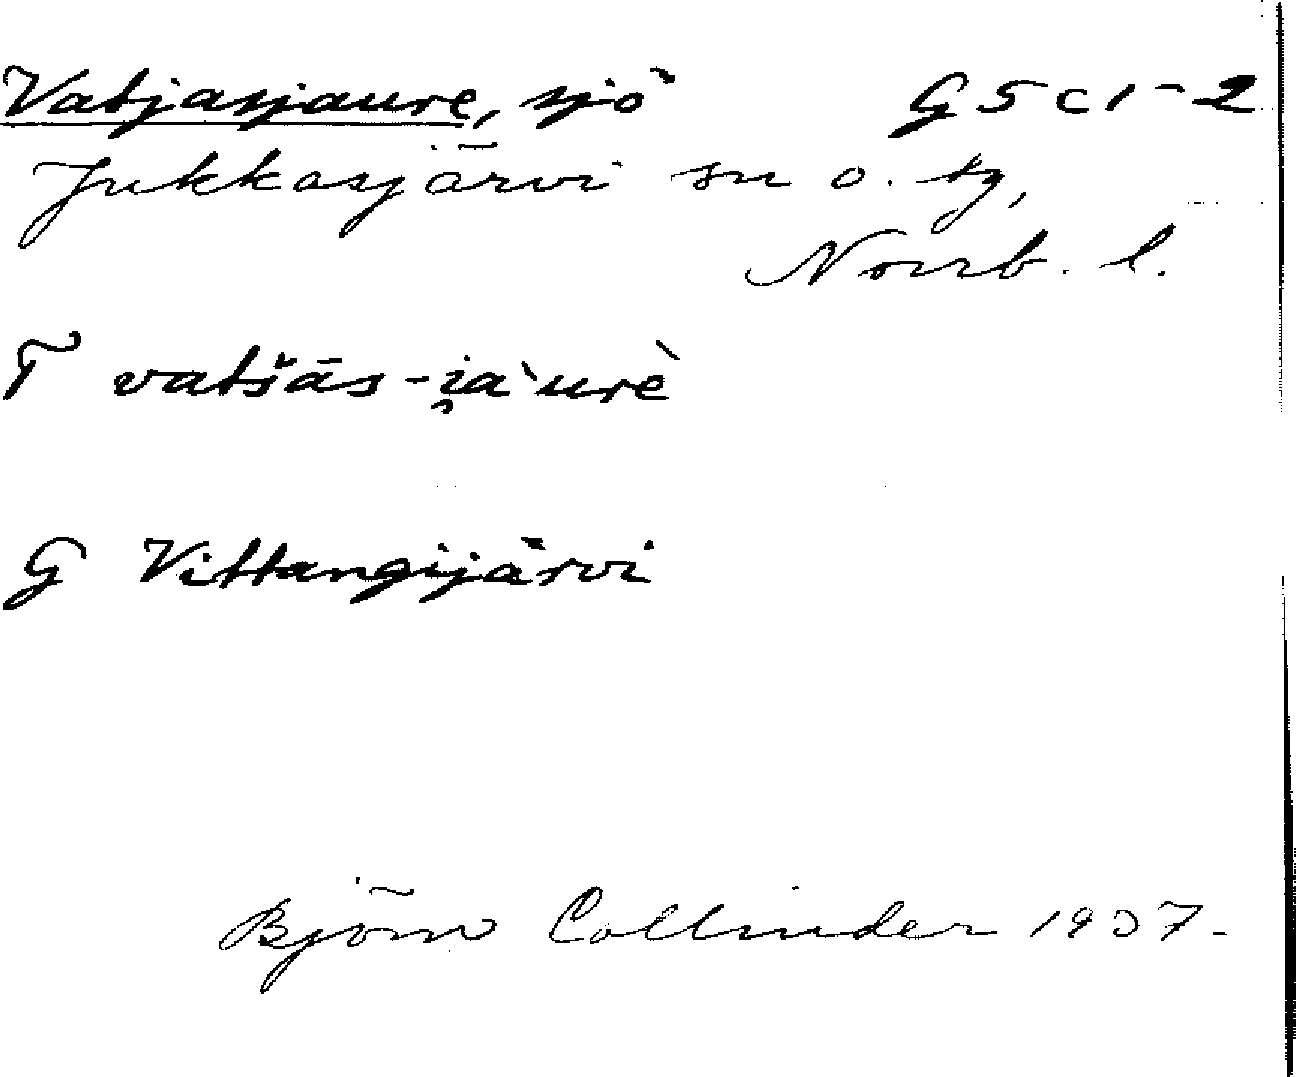 Vatjasjaure, sjö G5c1-2
Jukkasjärvi sn o. tg,
Norrb. l.
T vatšās-i̯a`urè
G Vittangijärvi
Björn Collinder 1937.